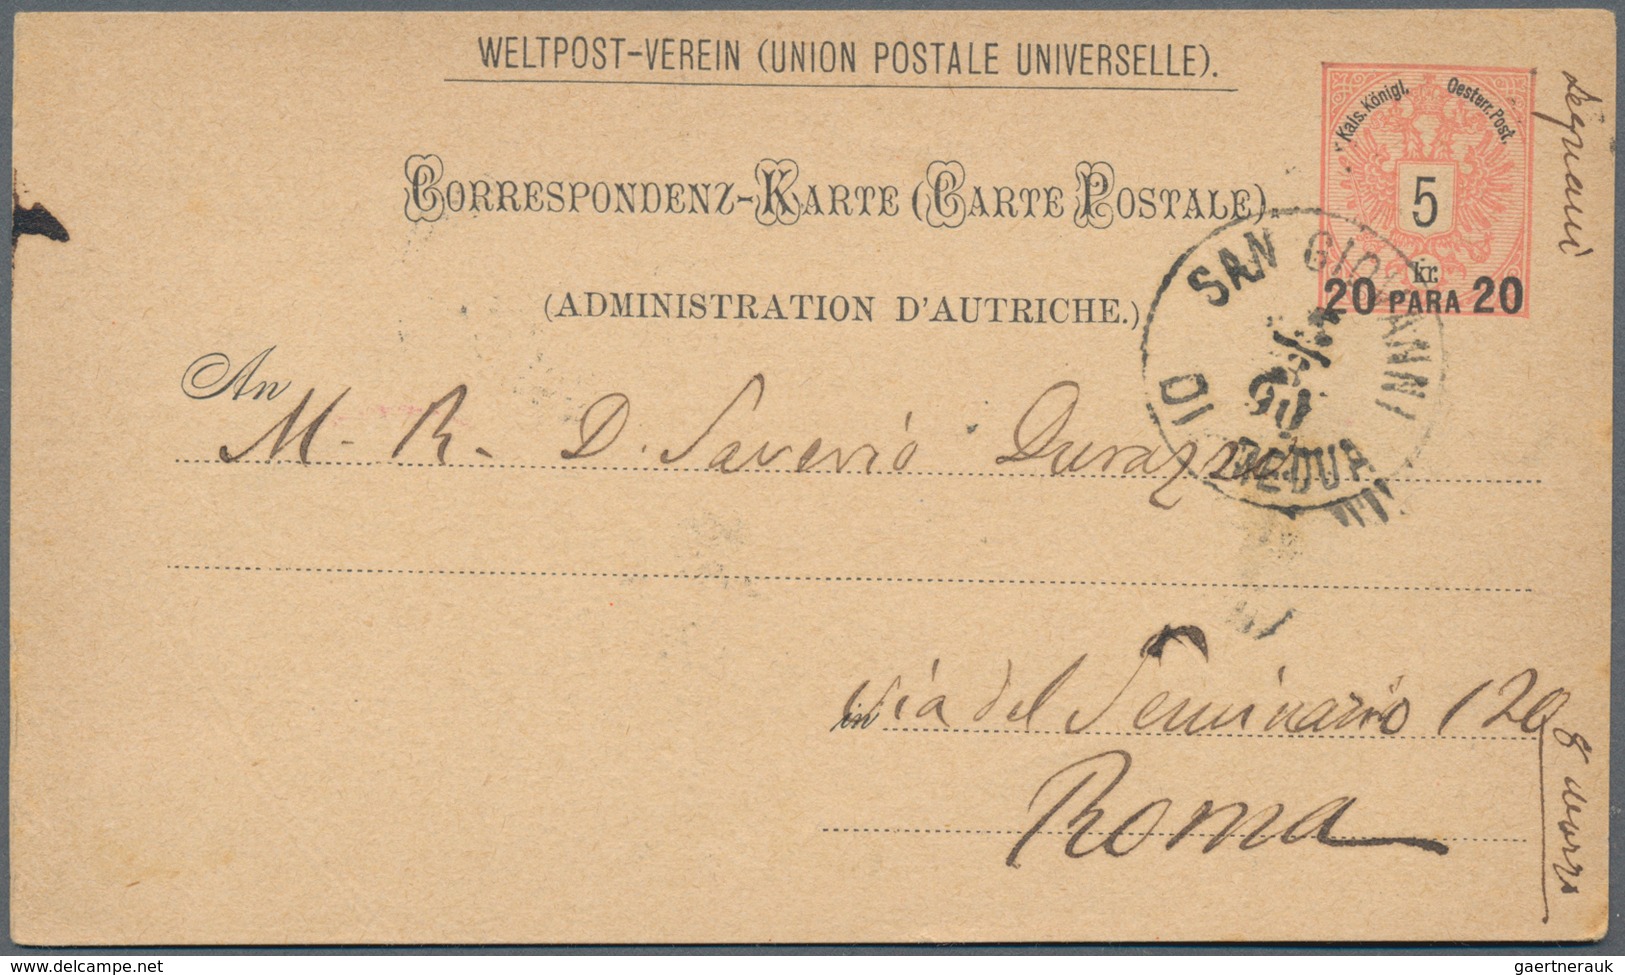 WELTPOST-VEREIN (UNION POSTALE UNIVERSELLE).
Kais. Königl. Oesterr. Post.
5
kr.
20 PARA 20
CORRESPONDENZ-KARTE (CARTE POSTALE).
(ADMINISTRATION D'AUTRICHE.)
SAN GIOVANNI
DI MEDUA
An
M. R. D. Saverio Durazzo
in Via del Seminario 120
Roma
www.delcampe.net
gaertnerauk